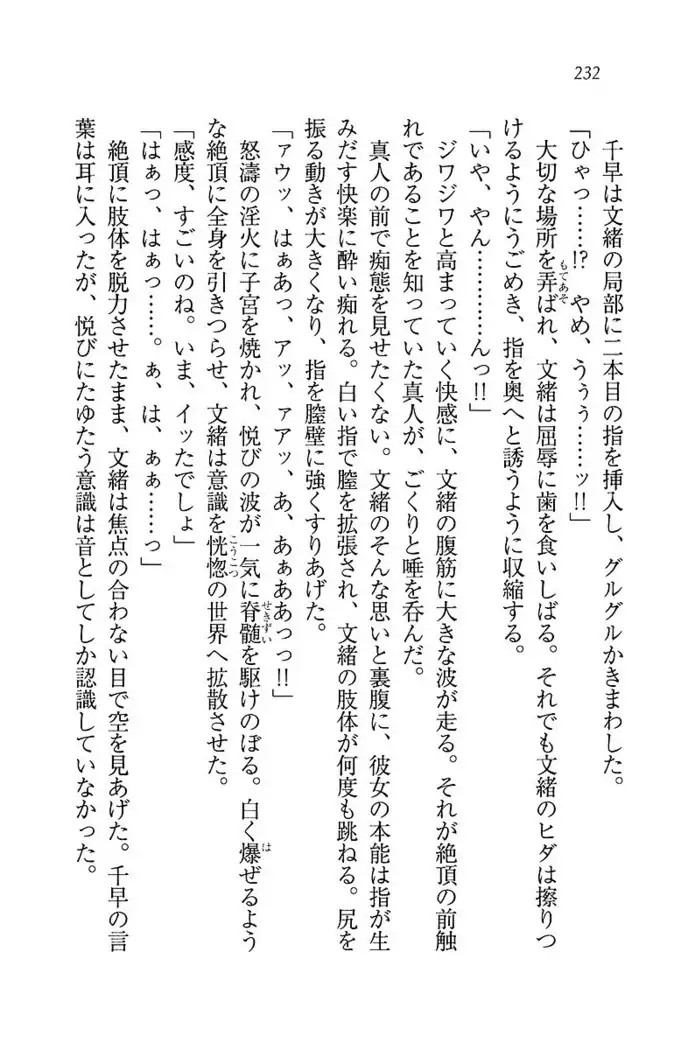 232
千早は文緒の局部に二本目の指を挿入し、グルグルかきまわした。
「ひゃっ……!?　やめ、うぅぅ……ッ!!」
大切な場所を弄ばれ、文緒は屈辱に歯を食いしばる。それでも文緒のヒダは擦りつ
けるようにうごめき、指を奥へと誘うように収縮する。
「いや、やん…………んっ!!」
ジワジワと高まっていく快感に、文緒の腹筋に大きな波が走る。それが絶頂の前触
れであることを知っていた真人が、ごくりと唾を呑んだ。
真人の前で痴態を見せたくない。文緒のそんな思いと裏腹に、彼女の本能は指が生
みだす快楽に酔い痴れる。白い指で膣を拡張され、文緒の肢体が何度も跳ねる。尻を
振る動きが大きくなり、指を膣壁に強くすりあげた。
「ァウッ、はぁあっ、アッ、ァアッ、あ、あぁああっっ!!」
怒濤の淫火に子宮を焼かれ、悦びの波が一気に脊髄を駆けのぼる。白く爆ぜるよう
な絶頂に全身を引きつらせ、文緒は意識を恍惚の世界へ拡散させた。
「感度、すごいのね。いま、イッたでしょ」
「はぁっ、はぁっ……。ぁ、は、ぁぁ……っ」
絶頂に肢体を脱力させたまま、文緒は焦点の合わない目で空を見あげた。千早の言
葉は耳に入ったが、悦びにたゆたう意識は音としてしか認識していなかった。